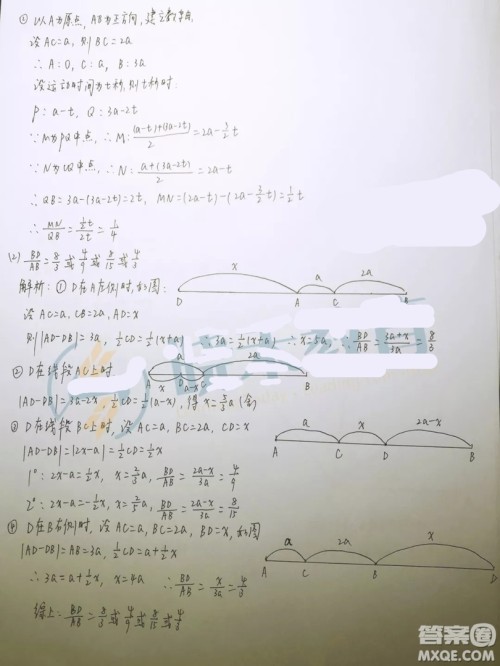 ① 以A为原点, AB为正方向, 建立数轴
设AC=a, 则BC=2a
∴A:0, C:a, B:3a
设运动时间为t秒, 则t秒时:
P: a-t, Q: 3a-2t
∵M为PQ中点, ∴M: \frac{(a-t)+(3a-2t)}{2}=2a-\frac{3}{2}t
∵N为CQ中点, ∴N: \frac{a+(3a-2t)}{2}=2a-t
∴QB=3a-(3a-2t)=2t, MN=(2a-t)-(2a-\frac{3}{2}t)=\frac{1}{2}t
∴\frac{MN}{QB}=\frac{\frac{1}{2}t}{2t}=\frac{1}{4}
(2) \frac{BD}{AB}=\frac{8}{3}或\frac{4}{9}或\frac{8}{15}或\frac{4}{3}
解析: ① D在A左侧时, 如图:
x a 2a
D A C B
设AC=a, CB=2a, AD=x
则|AD-DB|=3a, \frac{1}{2}CD=\frac{1}{2}(x+a) ∴3a=\frac{1}{2}(x+a) ∴x=5a, ∴\frac{BD}{AB}=\frac{3a+x}{3a}=\frac{8}{3}
② D在线段AC上时
a 2a
A x D a-x C B
|AD-DB|=3a-2x \frac{1}{2}CD=\frac{1}{2}(a-x), 得x=\frac{5}{3}a(舍)
③ D在线段BC上时, 设AC=a, BC=2a, CD=x
a x 2a-x
A C D B
|AD-DB|=|2x-a|=\frac{1}{2}CD=\frac{1}{2}x
1°: 2x-a=\frac{1}{2}x, x=\frac{2}{3}a, \frac{BD}{AB}=\frac{2a-x}{3a}=\frac{4}{9}
2°: 2x-a=-\frac{1}{2}x, x=\frac{2}{5}a, \frac{BD}{AB}=\frac{2a-x}{3a}=\frac{8}{15}
④ D在B右侧时, 设AC=a, BC=2a, BD=x, 如图
a 2a x
A C B D
|AD-DB|=AB=3a, \frac{1}{2}CD=a+\frac{1}{2}x
∴3a=a+\frac{1}{2}x, x=4a ∴\frac{BD}{AB}=\frac{x}{3a}=\frac{4}{3}
综上: \frac{BD}{AB}=\frac{8}{3}或\frac{4}{9}或\frac{8}{15}或\frac{4}{3}
答案圈
MXQE.COM